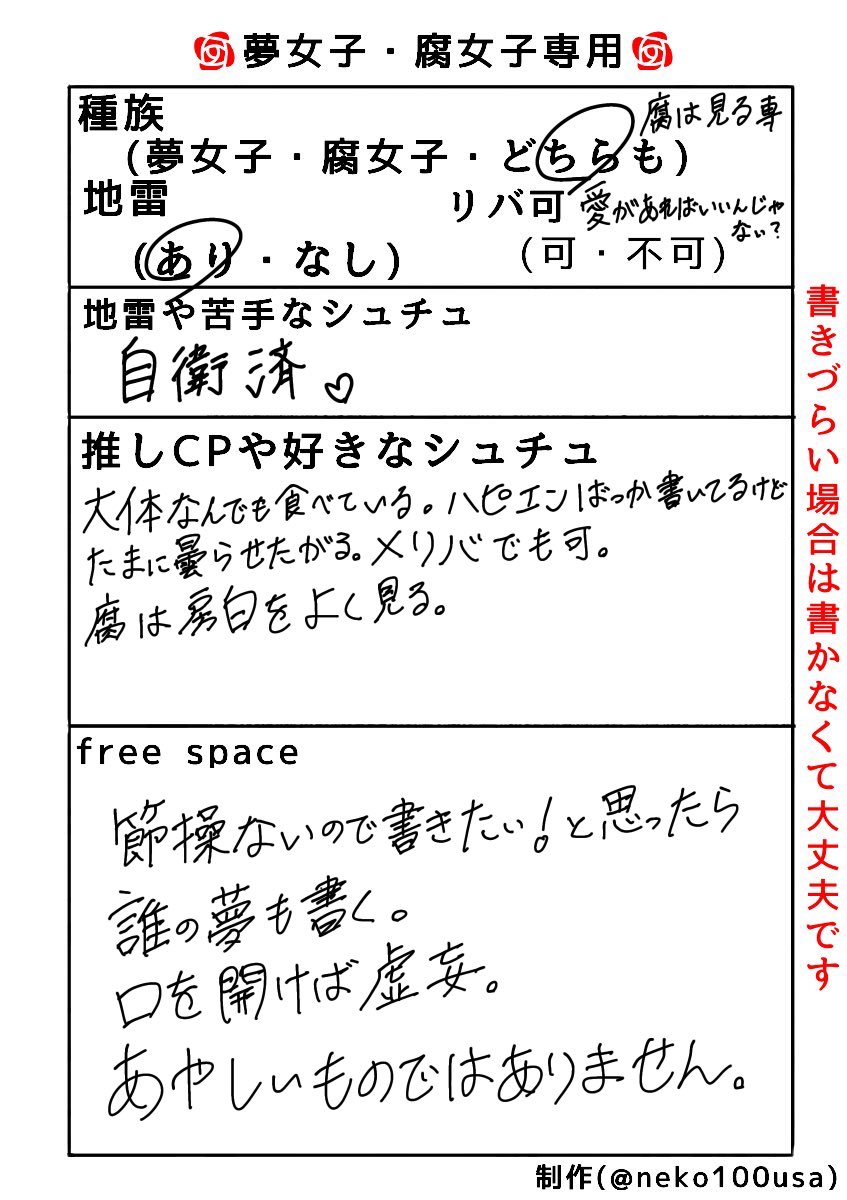 夢女子・腐女子専用
種族
腐は見る専
(夢女子・腐女子・どちらも)
地雷
(あり・なし)
リバ可
愛があればいいんじゃ
ない?
(可・不可)
地雷や苦手なシュチュ
自衛済♡
推しCPや好きなシュチュ
大体なんでも食べている。ハピエンばっか書いてるけど
たまに曇らせたがる。メリバでも可。
腐は房白をよく見る。
free space
節操ないので書きたい!と思ったら
誰の夢も書く。
口を開けば虚妄。
あやしいものではありません。
書きづらい場合は書かなくて大丈夫です
制作(@neko100usa)